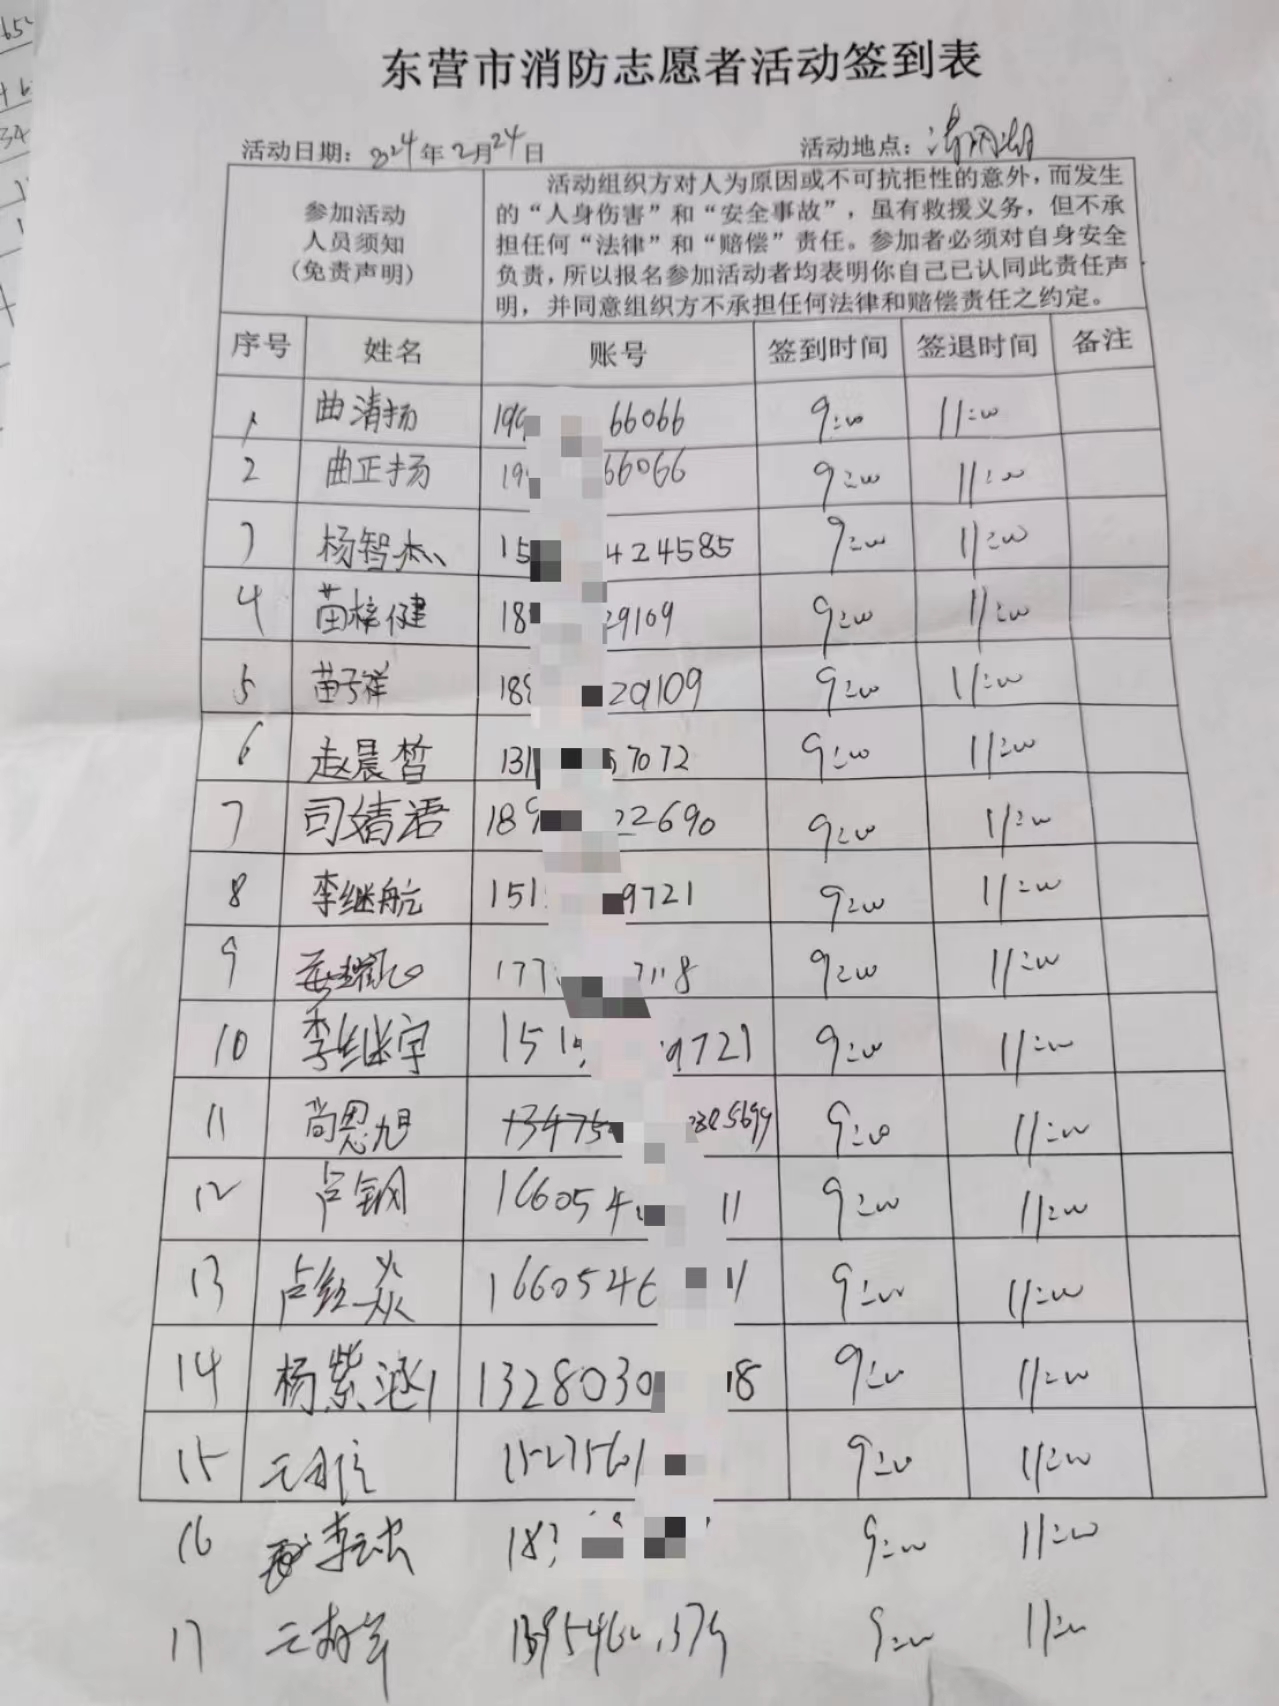 东营市消防志愿者活动签到表
活动日期：2024年2月24日 活动地点：清风湖
参加活动
人员须知
（免责声明）
活动组织方对人为原因或不可抗拒性的意外，而发生
的“人身伤害”和“安全事故”，虽有救援义务，但不承
担任何“法律”和“赔偿”责任。参加者必须对自身安全
负责，所以报名参加活动者均表明你自己已认同此责任声
明，并同意组织方不承担任何法律和赔偿责任之约定。
序号 姓名 账号 签到时间 签退时间 备注
1 曲清扬 199 66066 9:00 11:00
2 曲正扬 19 66066 9:00 11:00
3 杨智杰 15 424585 9:00 11:00
4 苗梓健 18 29109 9:00 11:00
5 苗子祥 189 29109 9:00 11:00
6 赵晨皙 131 7072 9:00 11:00
7 司婧语 189 22690 9:00 11:00
8 李继航 151 9721 9:00 11:00
9 177 7118 9:00 11:00
10 李继宇 151 9721 9:00 11:00
11 尚恩旭 13475 5699 9:00 11:00
12 卢钢 166054 11 9:00 11:00
13 卢红焱 1660546 11 9:00 11:00
14 杨紫涵 1328030 18 9:00 11:00
15 1527560 9:00 11:00
16 18 9:00 11:00
17 9:00 11:00